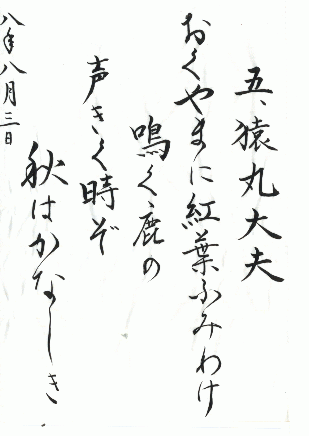 五、猿丸大夫
おくやまに紅葉ふみわけ
鳴く鹿の
声きく時ぞ
秋はかなしき
八年八月三日